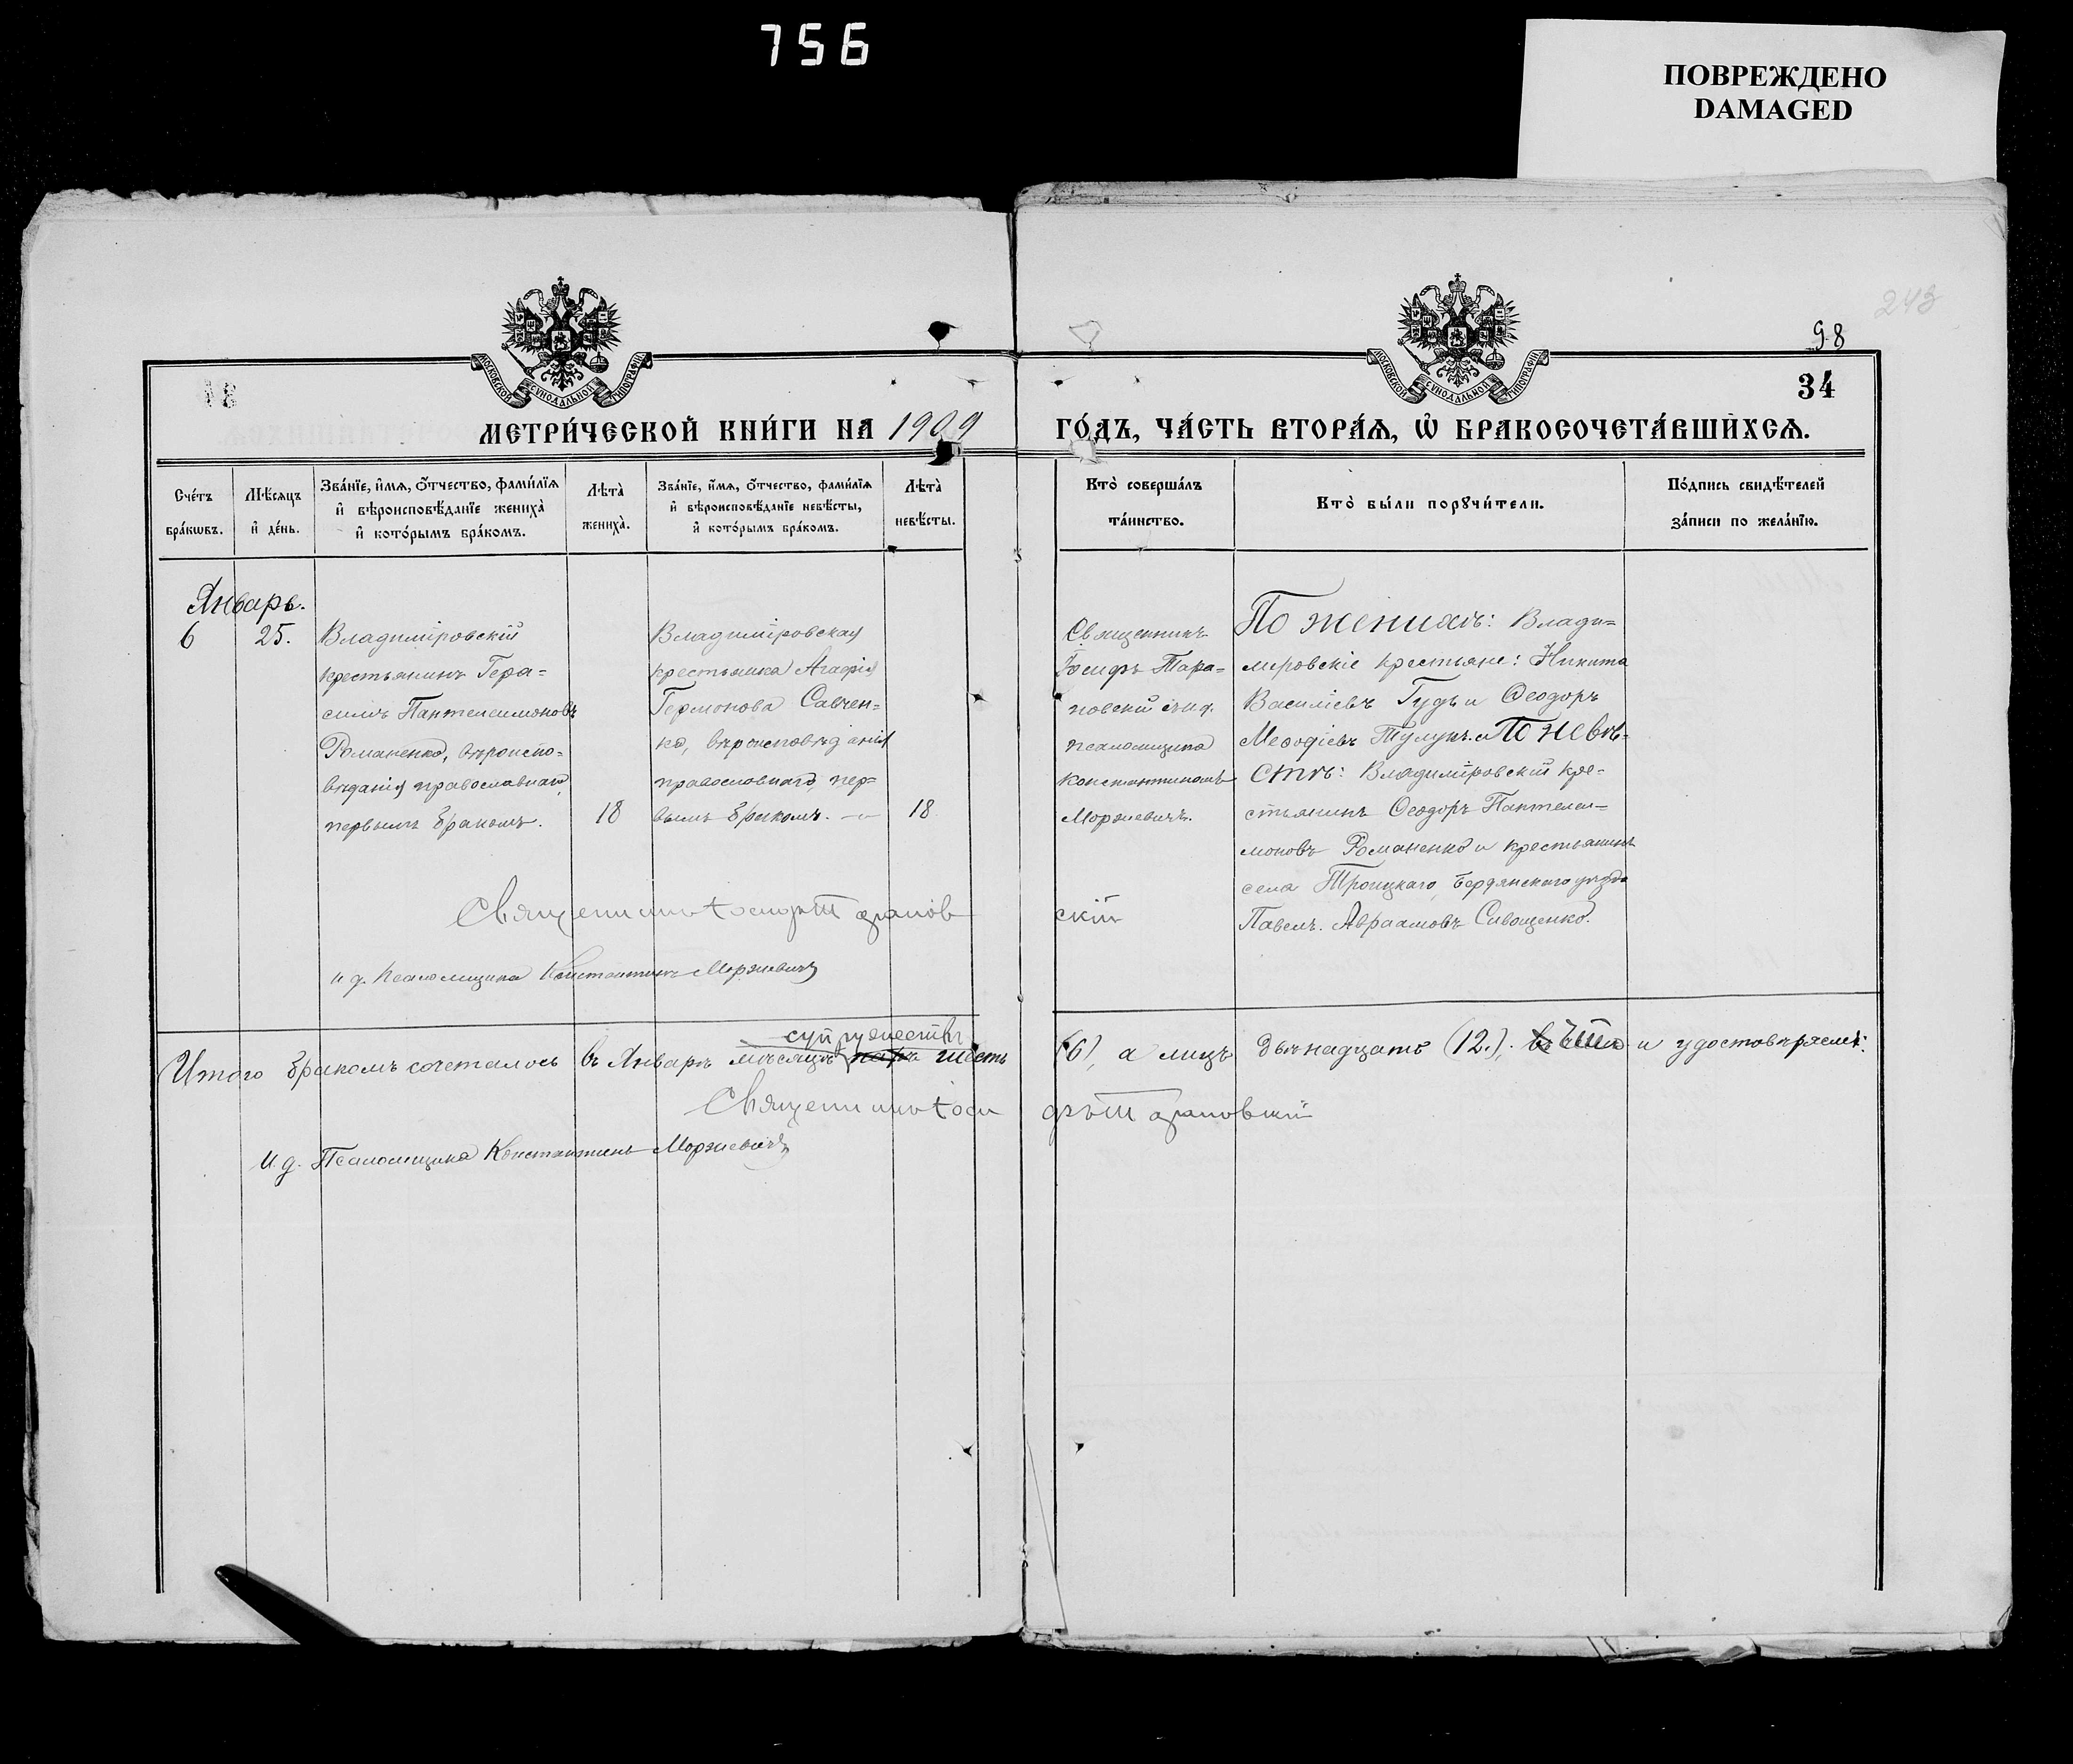 756
ПОВРЕЖДЕНО
DAMAGED
243
98
34
МОСКОВСКОЙ СУНОДАЛЬНОЙ ТИПОГРАФІИ
МОСКОВСКОЙ СУНОДАЛЬНОЙ ТИПОГРАФІИ
МЕТРИ́ЧЕСКОЙ КНИ́ГИ НА 1909 ГО́ДЪ, ЧА́СТЬ ВТОРА́Ѧ, Ѡ БРАКОСОЧЕТА́ВШИХСѦ.
Сче́тъ бра́кѡвъ.
Мѣ́сѧцъ и де́нь.
Зва́нїе, и́мѧ, о́тчество, фами́лїѧ и вѣроисповѣ́данїе жениха̀ и кото́рымъ бра́комъ.
Лѣта̀ жениха̀.
Зва́нїе, и́мѧ, о́тчество, фами́лїѧ и вѣроисповѣ́данїе невѣ́сты, и кото́рымъ бра́комъ.
Лѣта̀ невѣ́сты.
Кто̀ соверша́лъ та́инство.
Кто̀ бы́ли порꙋчи́тели.
По́дпись свидѣ́телей за́писи по жела́нїю.
Январь.
6
25.
Владимiровскiй
крестьянинъ Гера-
симъ Пантелеимоновъ
Романенко, вѣроиспо-
вѣданiя православнаго,
первымъ бракомъ.
18
Владимiровская
крестьянка Агафiя
Гермонова Савчен-
ко, вѣроисповѣданiя
православнаго, пер-
вымъ бракомъ.
18
Священникъ
Іосифъ Тара-
новскiй съ и.д.
псаломщика
Константиномъ
Моржевичъ.
По женихѣ: Влади-
мировскiе крестьяне: Никита
Василiевъ Гудь и Ѳеодоръ
Меѳодiевъ Тулупъ. По невѣ-
стѣ: Владимiровскiй кре-
стьянинъ Ѳеодоръ Пантелеи-
моновъ Романенко и крестьянинъ
села Троицкаго, Бердянскаго уѣзда
Павелъ Авраамовъ Сивощенко.
Священникъ Іосифъ Тарановскiй
и д. Псаломщика Константинъ Моржевичъ
супружествъ
Итого бракомъ сочеталось въ Январѣ мѣсяцѣ паръ шесть (6), а лицъ двѣнадцать (12.), въ чемъ и удостовѣряемъ:
Священникъ Іосифъ Тарановскiй
И. д. Псаломщика Константинъ Моржевичъ